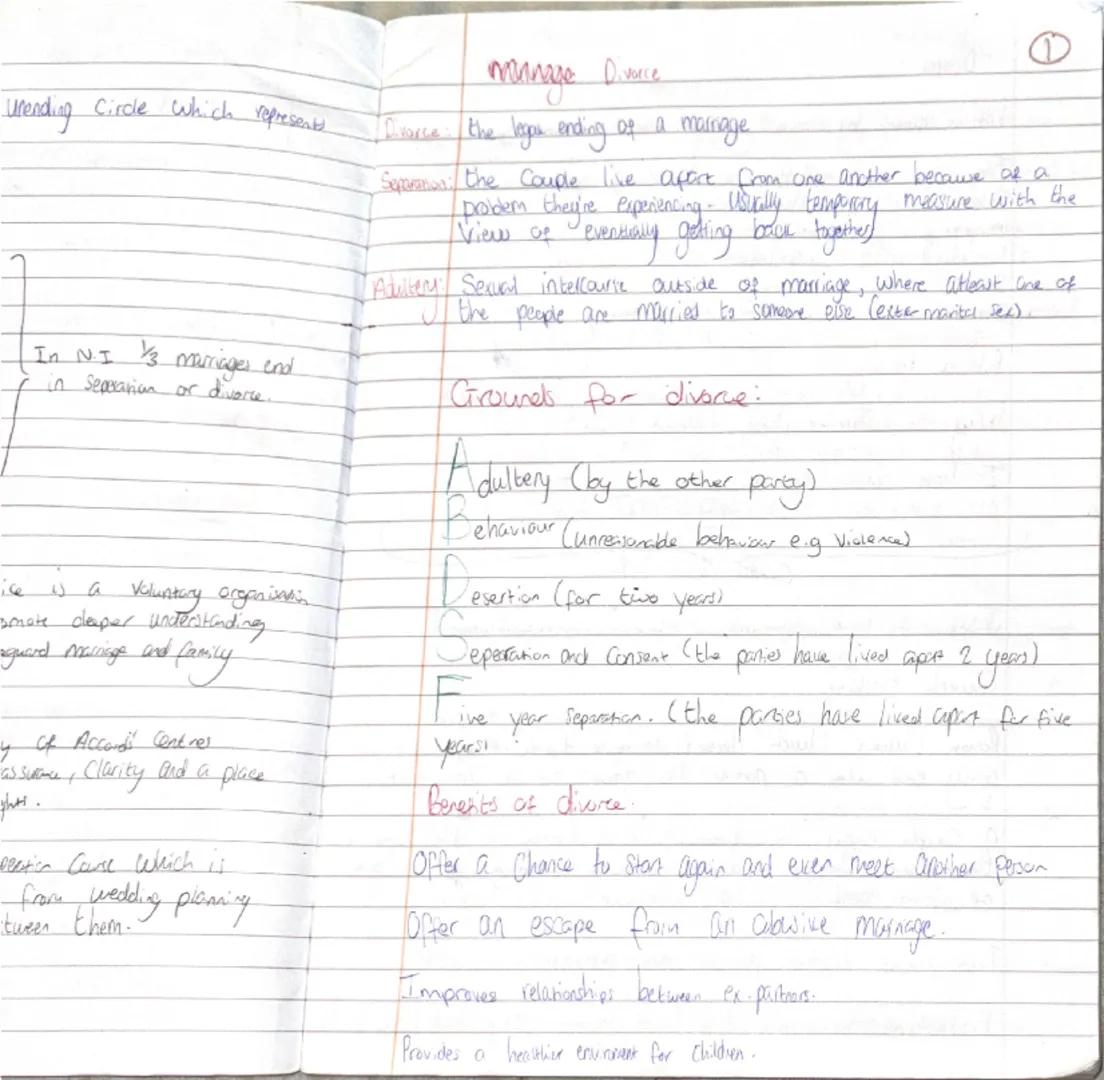 unending Circle which represents
In N.I 1/3 marriages end
in Seperation or divorce.
ice is a Voluntary organisation
omote deeper understanding
eguard marriage and family
y of Accord's Centres
assurance, Clarity and a place
ghts.
Course which is
from wedding planning
tween them.
1
marriage Divorce
Divorce: the legal ending of a marriage
Separation: the Couple live apart from one another because of a
problem they're experiencing. Usually temporary measure with the
view of eventually getting back together
Adultery: Sexual intercourse outside of marriage, where atleast one of
the people are married to someone else (exter marital sex).
Grounds for divorce:
Adultery (by the other party)
Behaviour (unreasonable behaviour e.g Violence)
Desertion (for two years)
Seperation and Consent (the parties have lived apart 2 years)
Five year Separation. (the parties have lived apart for five
years)
Benefits of divorce.
Offer a Chance to start again and even meet another person
Offer an escape from an abusive marriage.
Improves relationships between ex-partners.
Provides a healthier enviroment for Children.